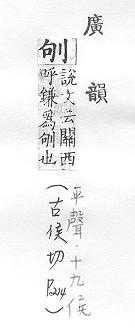 廣韻
說文云關西
呼鎌爲也
平聲·十九侯
(古侯切 P214)